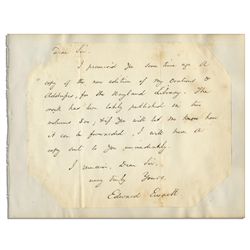 Dear Sir,
I promised you some time ago a
copy of the new edition of my Orations &
Addresses, for the Maryland Library. The
work has been lately published in two
volumes 8vo; & if you will let me know how
it can be forwarded, I will have a
copy sent to you immediately.
I remain, Dear Sir,
very truly Yours,
Edward Everett